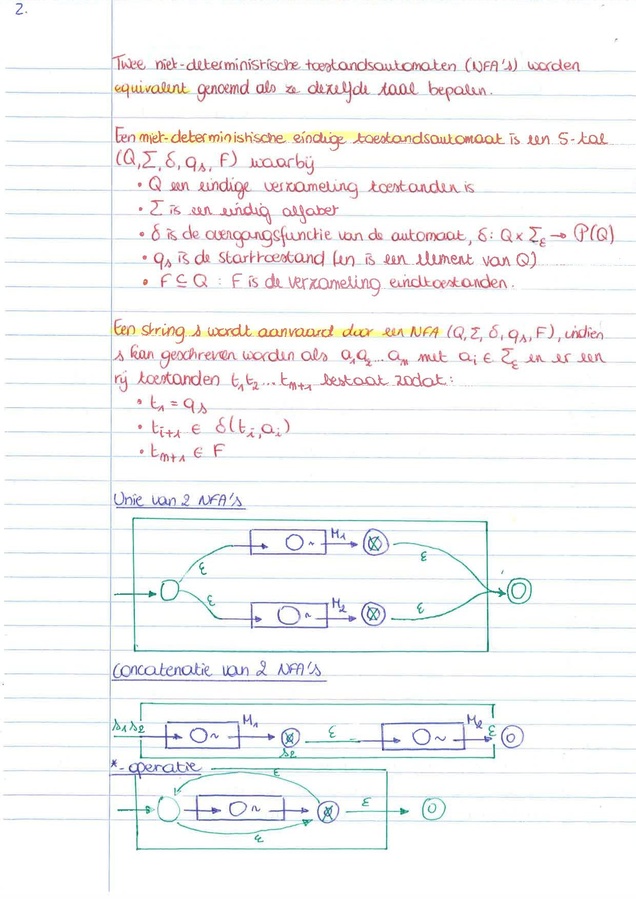 2.
Twee niet-deterministische toestandsautomaten (NFA's) worden
equivalent genoemd als ze dezelfde taal bepalen.
Een niet-deterministische eindige toestandsautomaat is een 5-tal
(Q, Σ, δ, qₛ, F) waarbij
• Q een eindige verzameling toestanden is
• Σ is een eindig alfabet
• δ is de overgangsfunctie van de automaat, δ: Q × Σε → P(Q)
• qₛ is de starttoestand (en is een element van Q)
• F ⊆ Q : F is de verzameling eindtoestanden.
Een string s wordt aanvaard door een NFA (Q, Σ, δ, qₛ, F), indien
s kan geschreven worden als a₁a₂...aₘ met aᵢ ∈ Σε en er een
rij toestanden t₁t₂...tₘ₊₁ bestaat zodat:
• t₁ = qₛ
• tᵢ₊₁ ∈ δ(tᵢ, aᵢ)
• tₘ₊₁ ∈ F
Unie van 2 NFA's
M₁
ε ε
ε M₂ ε
Concatenatie van 2 NFA's
s₁s₂ M₁ ε M₂ ε
s₂
*-operatie
ε
ε
ε